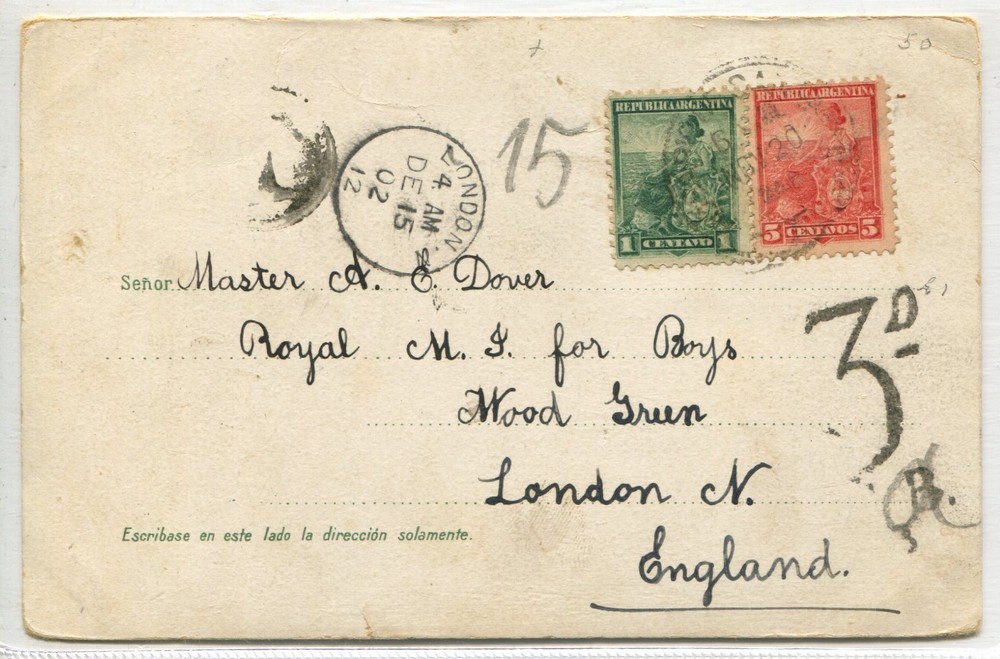 50
15
REPUBLICA ARGENTINA
1 CENTAVO 1
REPUBLICA ARGENTINA
5 CENTAVOS 5
NOV 20
LONDON
4 AM
DE 15
02
12
Señor. Master A. E. Dover
Royal M. I. for Boys
Wood Green
London N.
England.
3D
B.
Escribase en este lado la dirección solamente.